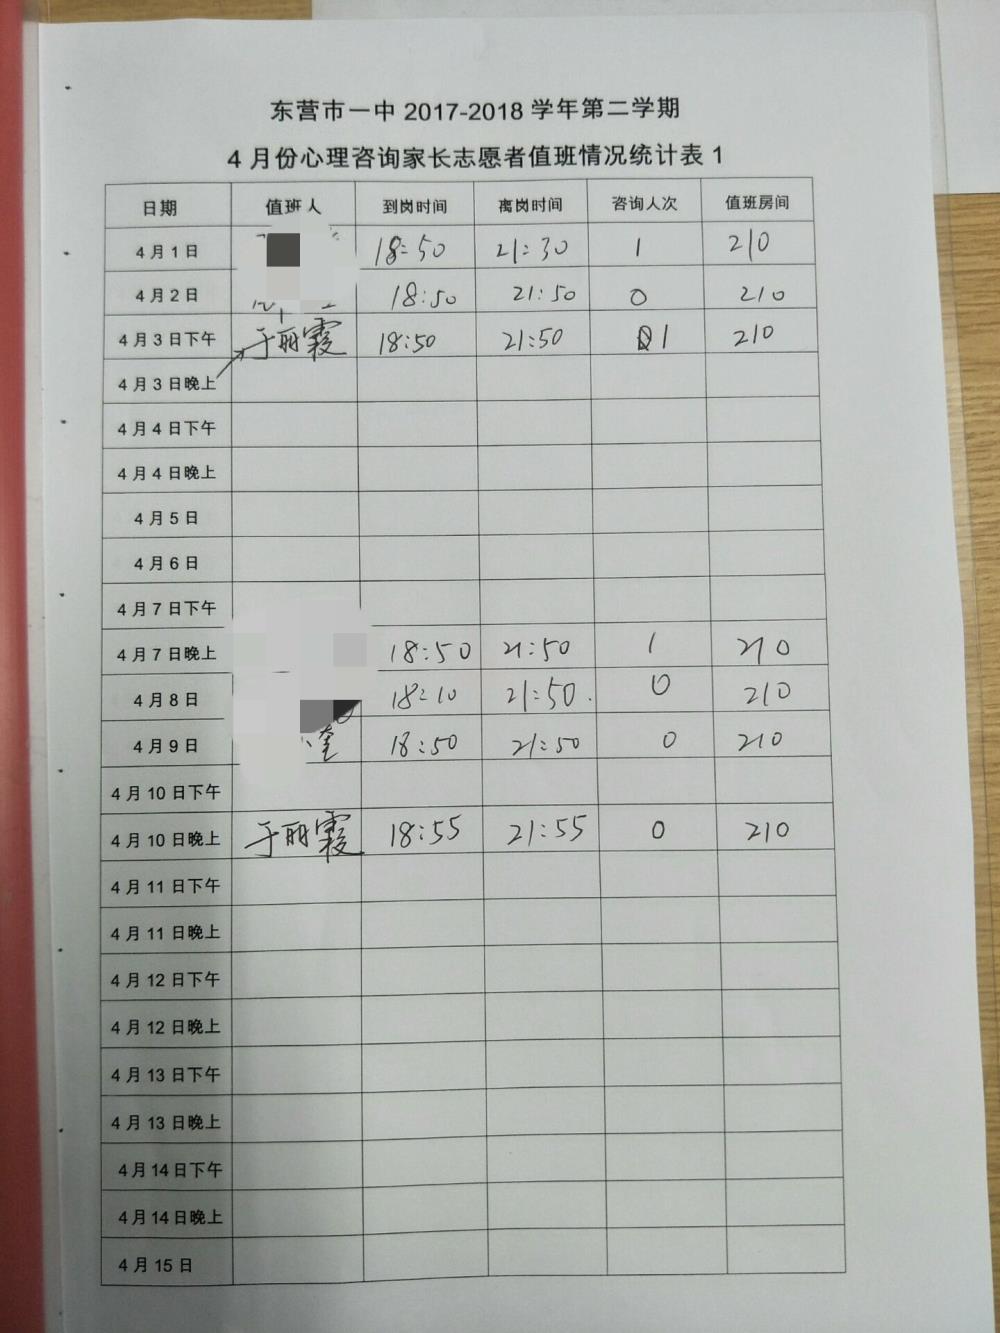 东营市一中 2017-2018 学年第二学期
4 月份心理咨询家长志愿者值班情况统计表 1
日期 值班人 到岗时间 离岗时间 咨询人次 值班房间
4 月 1 日 18:50 21:30 1 210
4 月 2 日 18:50 21:50 0 210
4 月 3 日下午 于丽霞 18:50 21:50 1 210
4 月 3 日晚上
4 月 4 日下午
4 月 4 日晚上
4 月 5 日
4 月 6 日
4 月 7 日下午
4 月 7 日晚上 18:50 21:50 1 210
4 月 8 日 18:10 21:50 0 210
4 月 9 日 18:50 21:50 0 210
4 月 10 日下午
4 月 10 日晚上 于丽霞 18:55 21:55 0 210
4 月 11 日下午
4 月 11 日晚上
4 月 12 日下午
4 月 12 日晚上
4 月 13 日下午
4 月 13 日晚上
4 月 14 日下午
4 月 14 日晚上
4 月 15 日